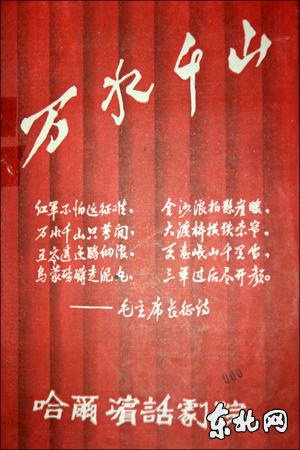 万水千山
红军不怕远征难,
万水千山只等闲,
五岭逶迤腾细浪,
乌蒙磅礴走泥丸,
金沙浪拍悬崖暖,
大渡桥横铁索寒,
更喜岷山千里雪,
三军过后尽开颜。
——毛主席长征诗
哈爾濱話劇院
东北网